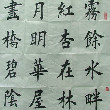 霧餘水畔
紅杏在林
月明華屋
畫橋碧陰